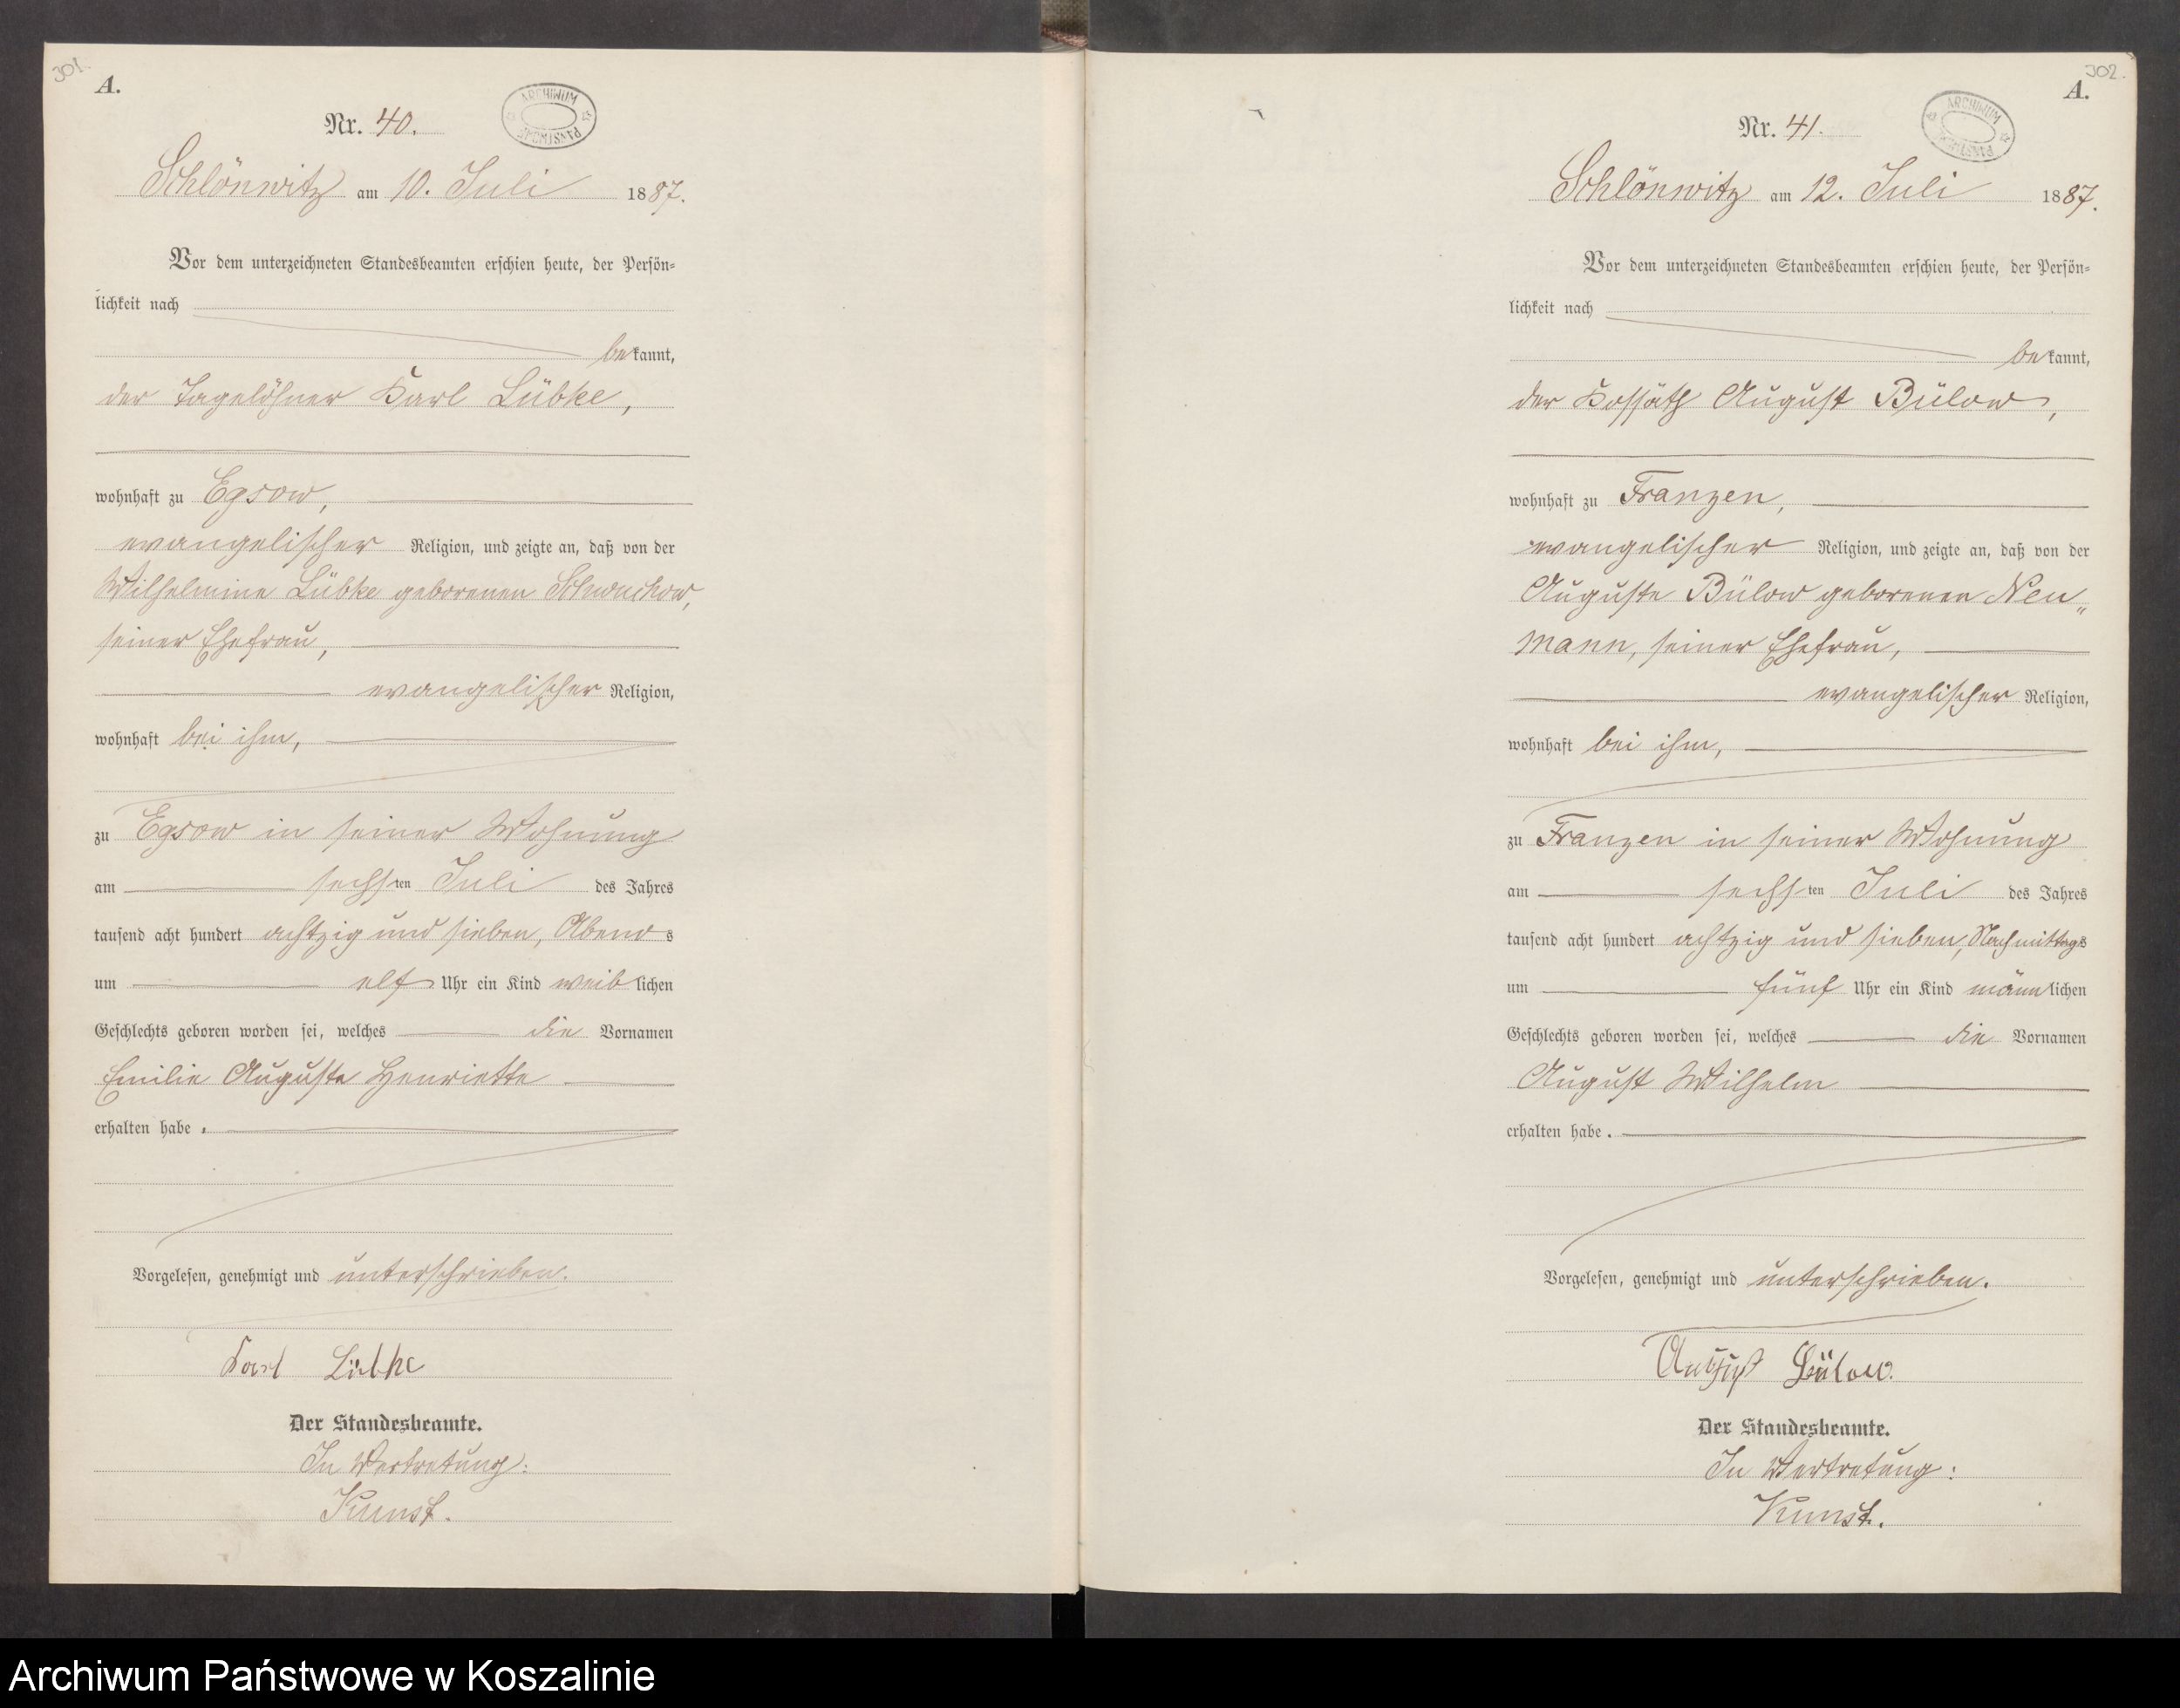 301.
A.
ARCHIWUM PAŃSTWOWE
Nr. 40.
Schlönwitz am 10. Juli 1887.
Vor dem unterzeichneten Standesbeamten erschien heute, der Persön=
lichkeit nach
bekannt,
der Tagelöhner Karl Lübke,
wohnhaft zu Egsow,
evangelischer Religion, und zeigte an, daß von der
Wilhelmine Lübke geborenen Schwuchow,
seiner Ehefrau,
evangelischer Religion,
wohnhaft bei ihm,
zu Egsow in seiner Wohnung
am sechsten Juli des Jahres
tausend acht hundert achtzig und sieben, Abends
um elf Uhr ein Kind weiblichen
Geschlechts geboren worden sei, welches die Vornamen
Emilie Auguste Henriette
erhalten habe.
Vorgelesen, genehmigt und unterschrieben.
Karl Lübke
Der Standesbeamte.
In Vertretung:
Kunst.
302.
A.
ARCHIWUM PAŃSTWOWE
Nr. 41.
Schlönwitz am 12. Juli 1887.
Vor dem unterzeichneten Standesbeamten erschien heute, der Persön=
lichkeit nach
bekannt,
der Kossäth August Bülow,
wohnhaft zu Franzen,
evangelischer Religion, und zeigte an, daß von der
Auguste Bülow geborenen Neu„
mann, seiner Ehefrau,
evangelischer Religion,
wohnhaft bei ihm,
zu Franzen in seiner Wohnung
am sechsten Juli des Jahres
tausend acht hundert achtzig und sieben, Nachmittags
um fünf Uhr ein Kind männlichen
Geschlechts geboren worden sei, welches die Vornamen
August Wilhelm
erhalten habe.
Vorgelesen, genehmigt und unterschrieben.
August Bülow.
Der Standesbeamte.
In Vertretung:
Kunst.
Archiwum Państwowe w Koszalinie